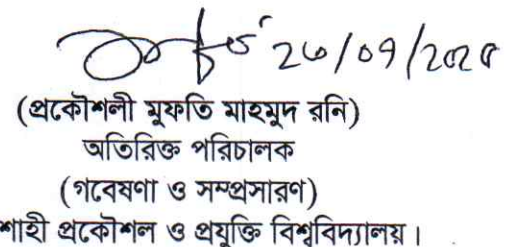 ২৬/০৭/২০২৫
(প্রকৌশলী মুফতি মাহমুদ রনি)
অতিরিক্ত পরিচালক
(গবেষণা ও সম্প্রসারণ)
শাহী প্রকৌশল ও প্রযুক্তি বিশ্ববিদ্যালয়।